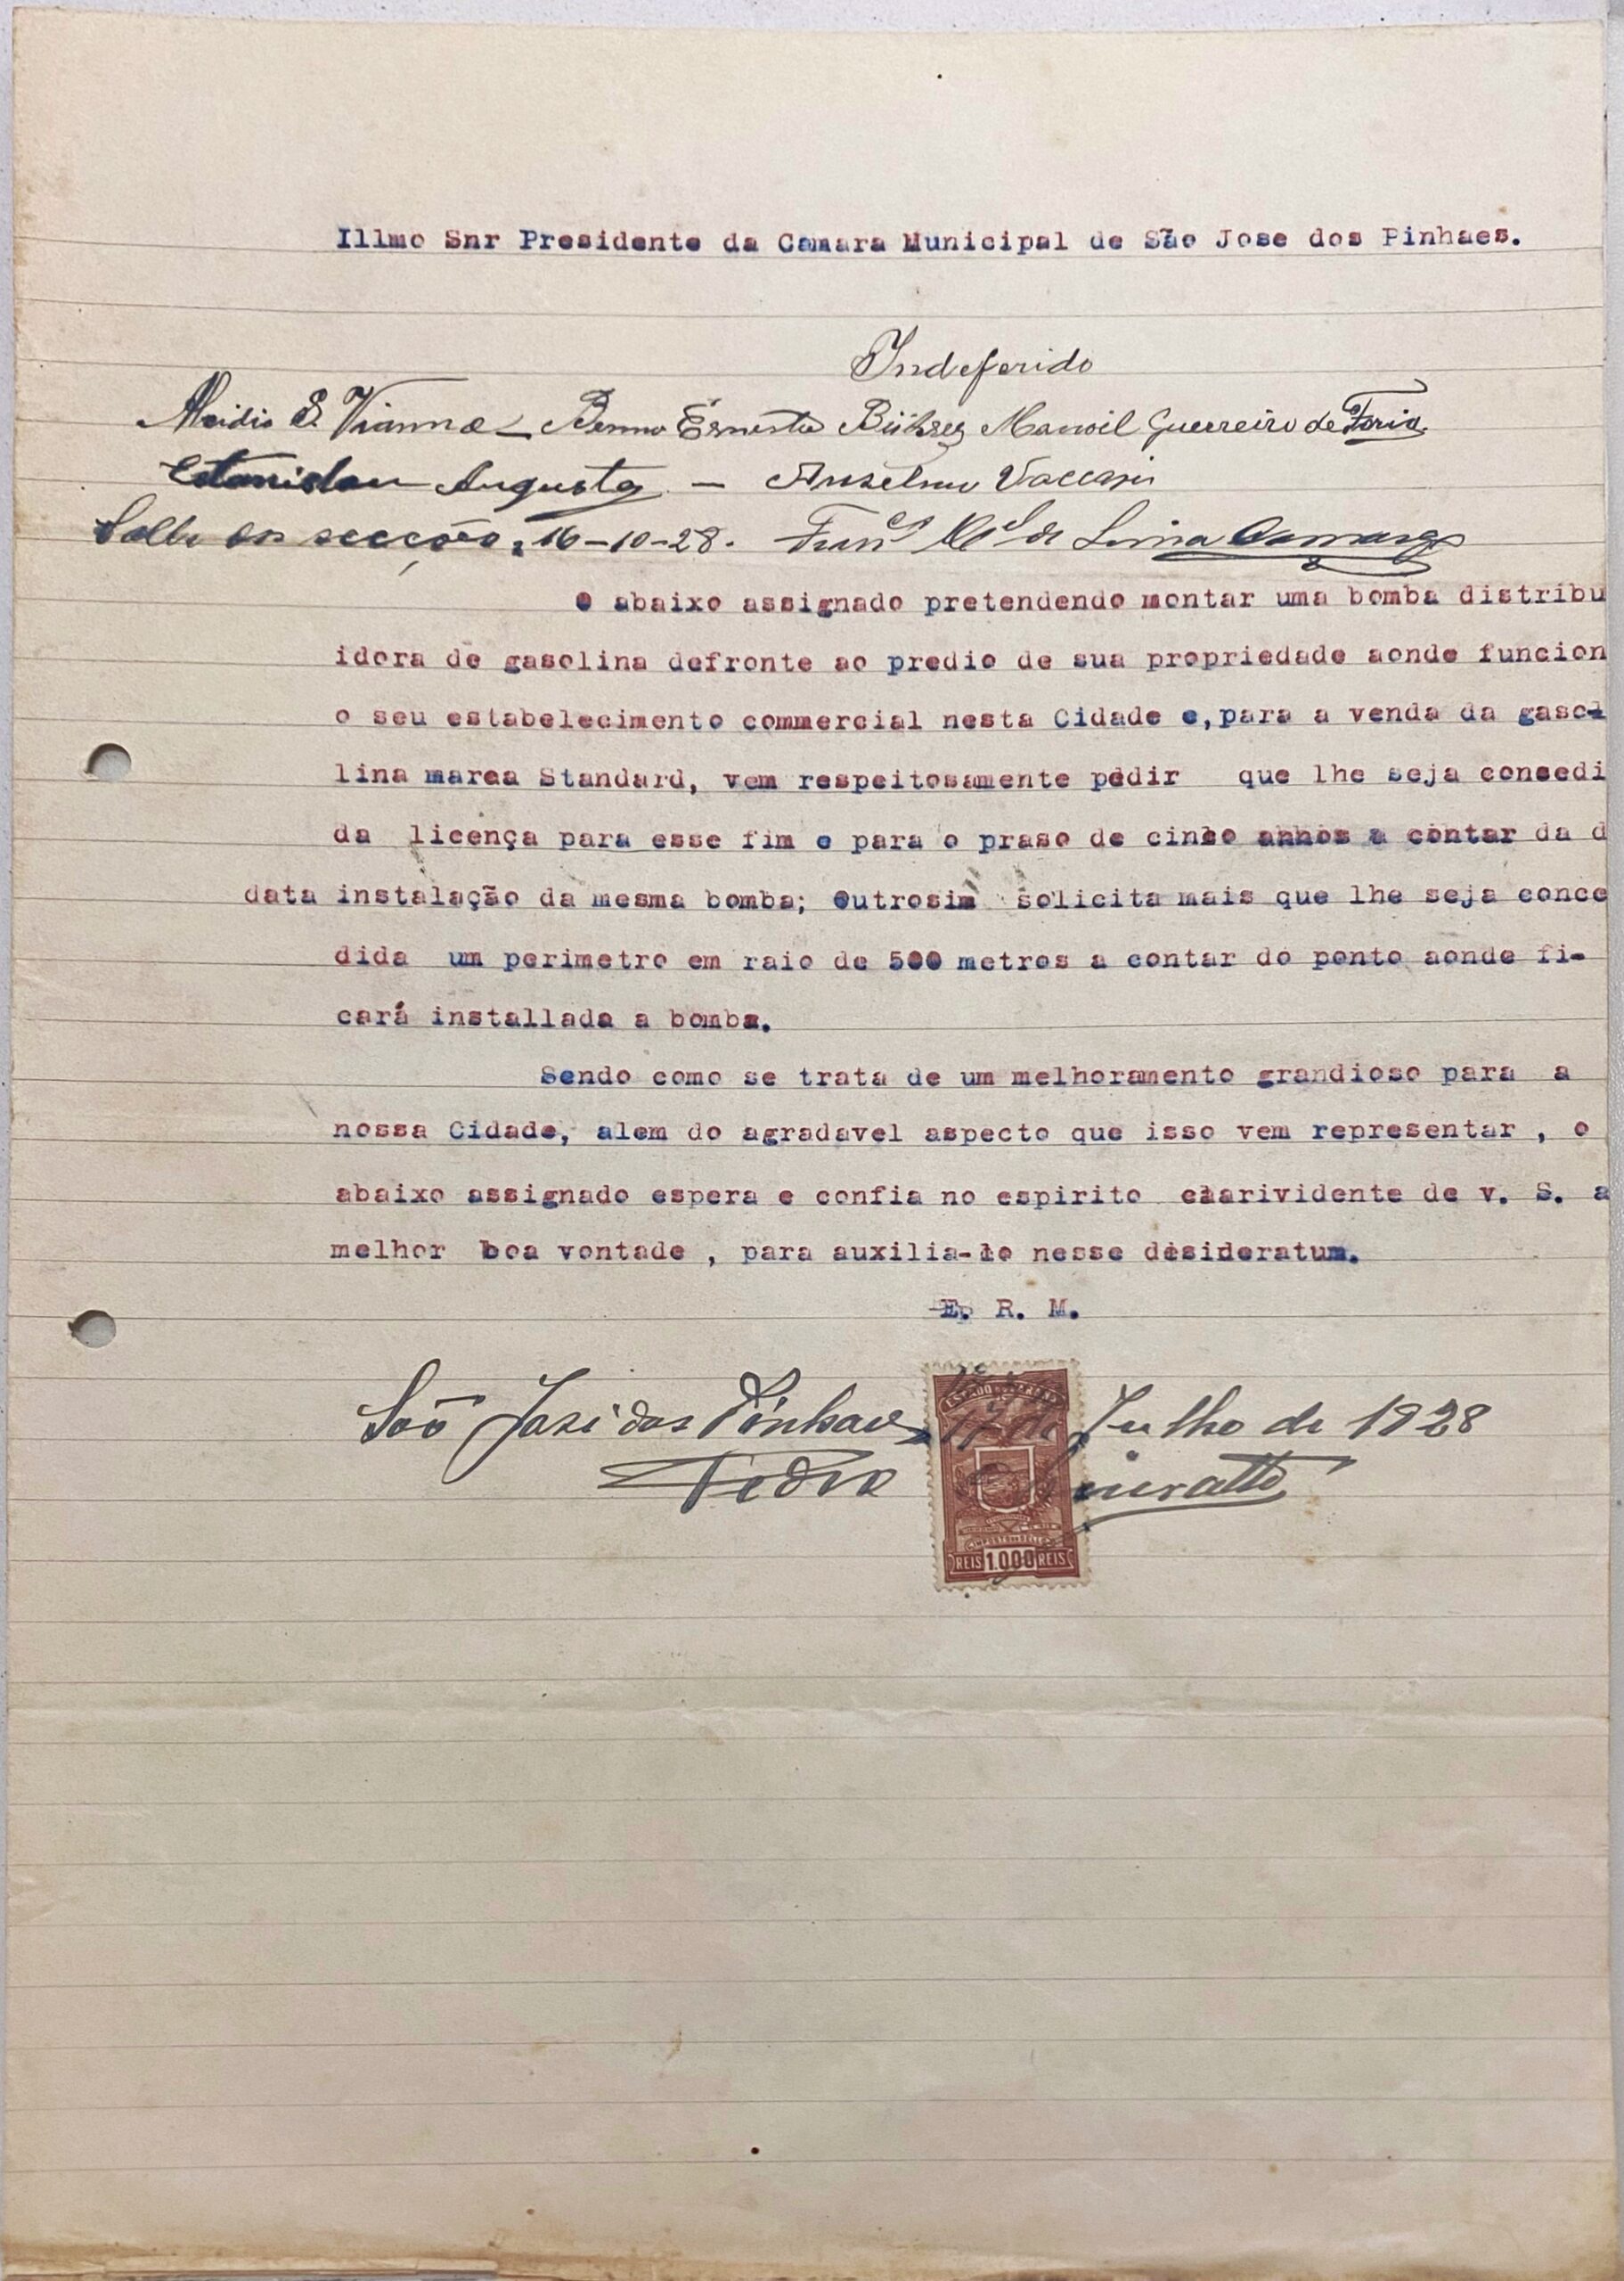 Illmo Snr Presidente da Camara Municipal de São Jose dos Pinhaes.
Indeferido
Alcidio S. Vianna - Benno Ernesto Manoel Guerreiro de Faria
Estanislau Augusto - Anselmo Vaccari
Salla das secções, 16-10-28. de Lima Camargo
O abaixo assignado pretendendo montar uma bomba distribu
idora de gasolina defronte ao predio de sua propriedade aonde funcion
o seu estabelecimento commercial nesta Cidade e,para a venda da gaso-
lina marca Standard, vem respeitosamente pedir que lhe seja consedi
da licença para esse fim e para o praso de cinco annos a contar da d
data instalação da mesma bomba; Outrosim solicita mais que lhe seja conce
dida um perimetro em raio de 500 metros a contar do ponto aonde fi-
cará installada a bomba.
Sendo como se trata de um melhoramento grandioso para a
nossa Cidade, alem do agradavel aspecto que isso vem representar , o
abaixo assignado espera e confia no espirito clarividente de v. S. a
melhor boa vontade , para auxilia-lo nesse desideratum.
E. R. M.
São José dos Pinhaes, 17 de Julho de 1928
Pedro
ESTADO DO PARANÁ
REIS 1.000 REIS